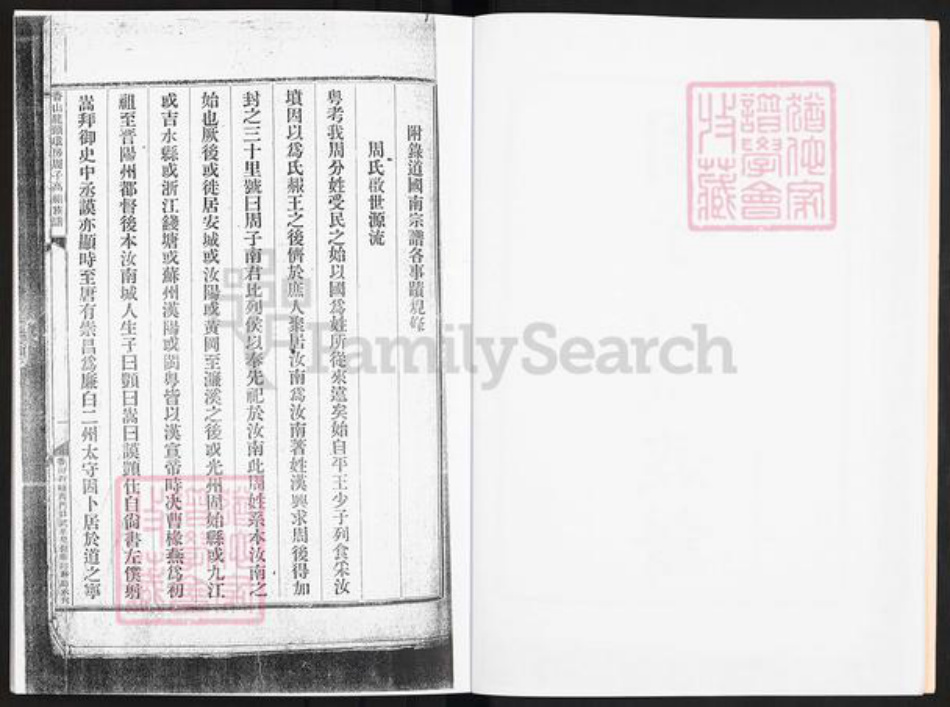 附錄道國南宗譜各事蹟規條
周氏啟世源流
粵考我周分姓受民之始以國爲姓所從來遠矣始自平王少子列食采汝
墳因以爲氏赧王之後儕於庶人聚居汝南爲汝南著姓漢興求周後得加
封之三十里號曰周子南君比列侯以奉先祀於汝南此周姓系本汝南之
始也厥後或徙居安城或汝陽或黃岡至濂溪之後或光州固始縣或九江
或吉水縣或浙江錢塘或蘇州漢陽或閩粵皆以漢宣帝時決曹椽燕爲初
祖至晉陽州都督後本汝南城人生子曰顗曰嵩曰謨顗仕自尙書左僕射
嵩拜御史中丞謨亦顯時至唐有崇昌爲廉白二州太守因卜居於道之寧
香山龍頭環房周子高祖族譜
一
FamilySearch
猶他家
譜學會
收藏
猶他家
譜學會
收藏